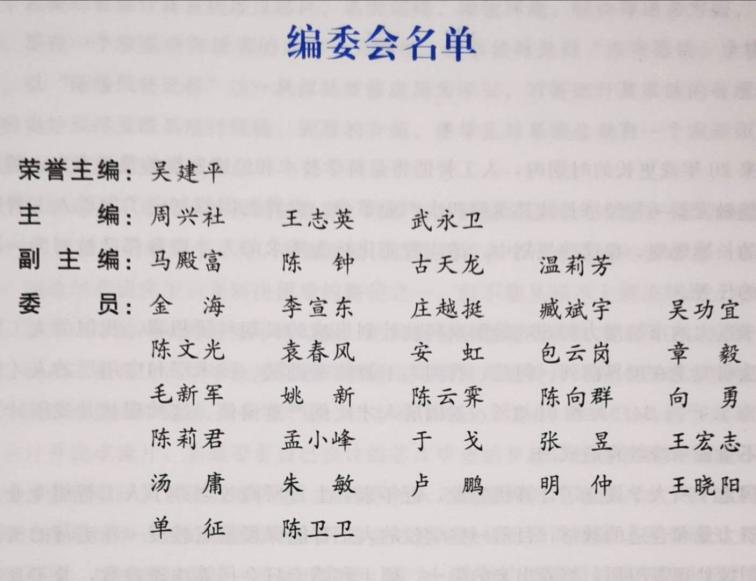 编委会名单
荣誉主编：吴建平
主编：周兴社 王志英 武永卫
副主编：马殿富 陈钟 古天龙 温莉芳
委员：金海 李宣东 庄越挺 臧斌宇 吴功宜
陈文光 袁春风 安虹 包云岗 章毅
毛新军 姚新 陈云霁 陈向群 向勇
陈莉君 孟小峰 于戈 张昱 王宏志
汤庸 朱敏 卢鹏 明仲 王晓阳
单征 陈卫卫